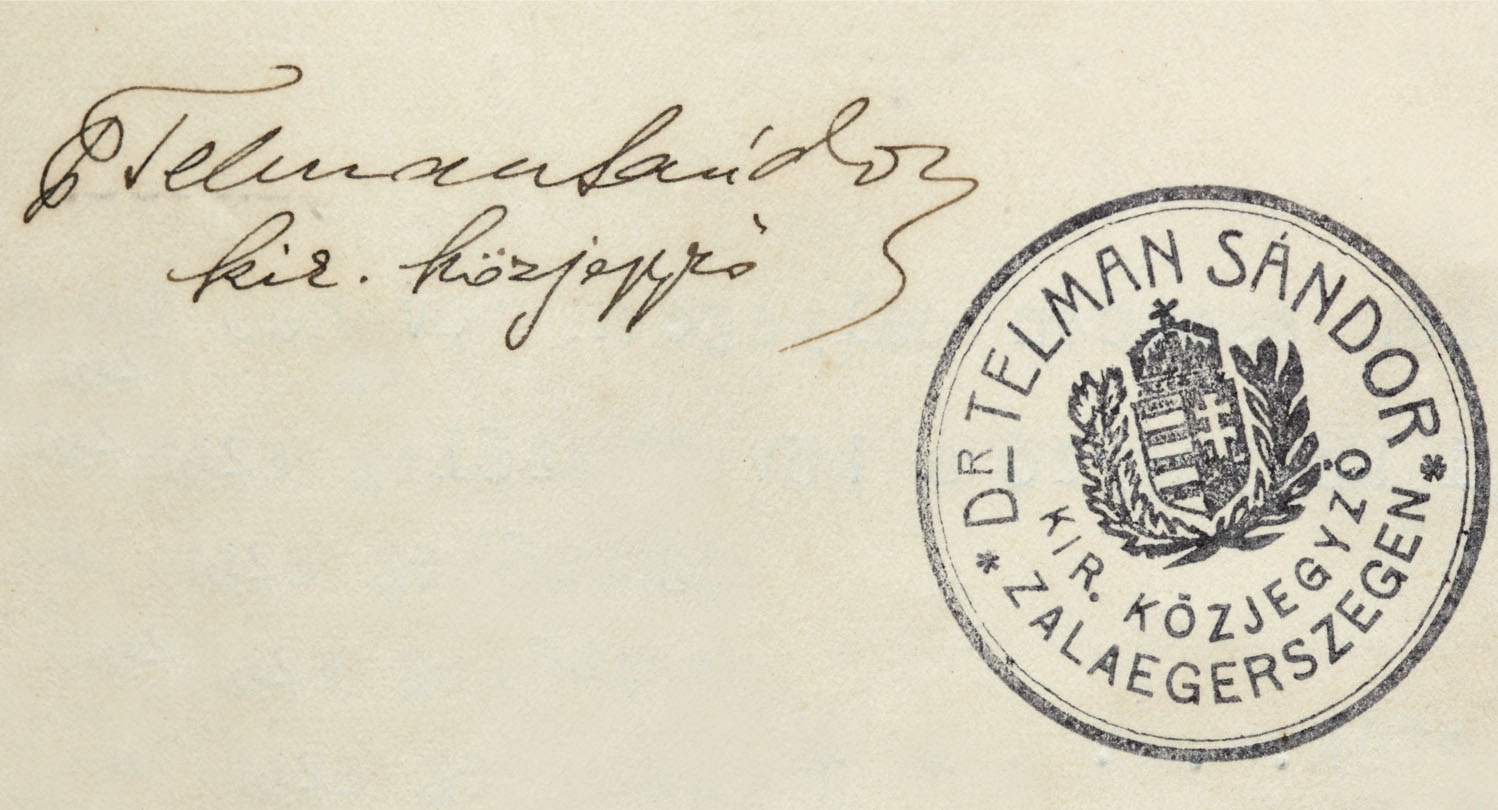 Dr Telman Sándor
kir. közjegyző
* DR TELMAN SÁNDOR *
KIR. KÖZJEGYZŐ
ZALAEGERSZEGEN